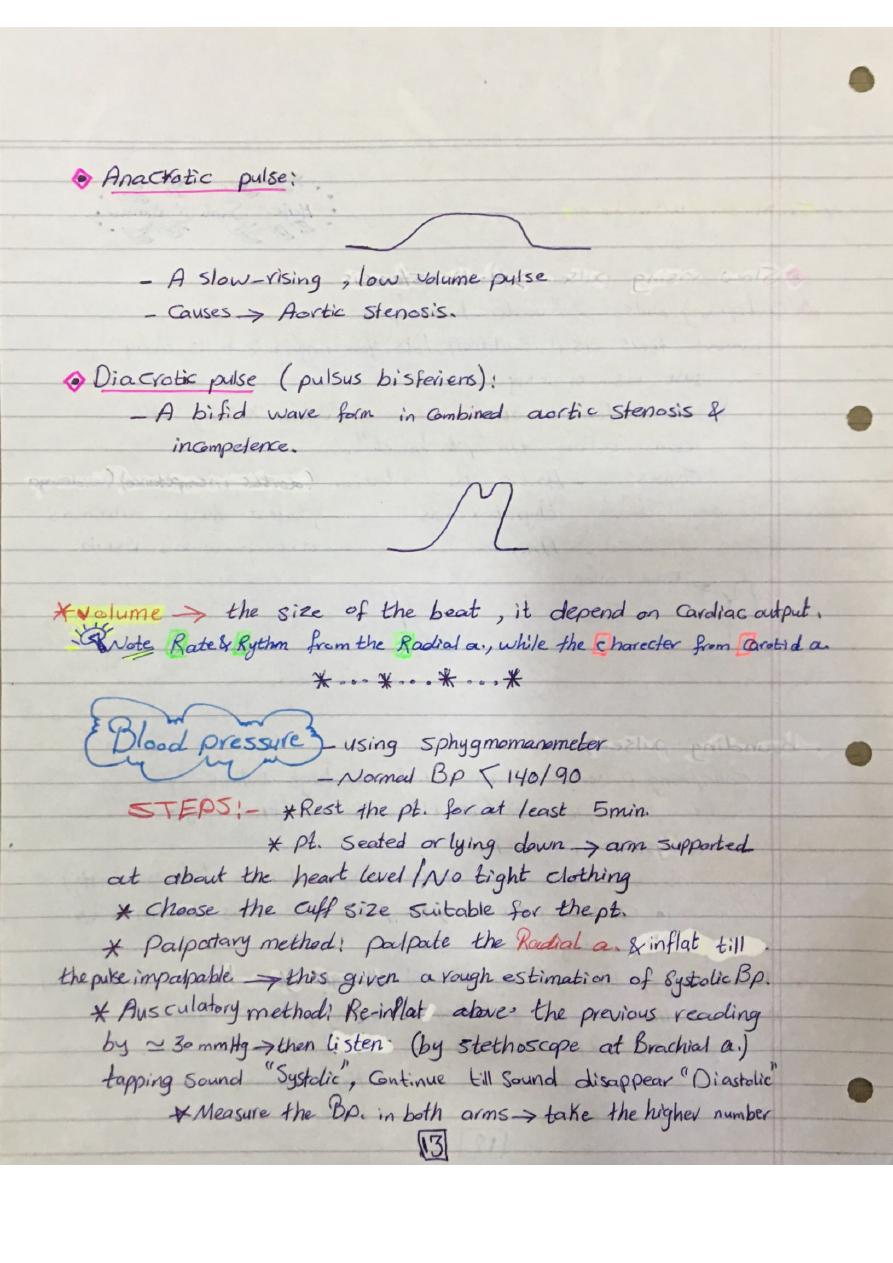 Anacrotic pulse:
- A slow-rising, low volume pulse
- Causes → Aortic stenosis.
Diacrotic pulse (pulsus bisferiens):
- A bifid wave form in combined aortic stenosis &
incompetence.
*volume → the size of the beat, it depend on cardiac output.
Note Rate & Rythm from the Radial a., while the charecter from Carotid a.
*...*...*...*
Blood pressure - using sphygmomanometer
- Normal Bp < 140/90
STEPS:- *Rest the pt. for at least 5min.
* pt. seated or lying down → arm supported
at about the heart level / No tight clothing
* choose the cuff size suitable for the pt.
* Palpatary method: palpate the Radial a. & inflat till
the pulse impalpable → this given a rough estimation of systolic Bp.
* Ausculatory method: Re-inflat above the previous reading
by ≃ 30 mmHg → then listen (by stethoscope at Brachial a.)
tapping sound "Systolic", continue till sound disappear "Diastolic"
* Measure the Bp. in both arms → take the higher number
13